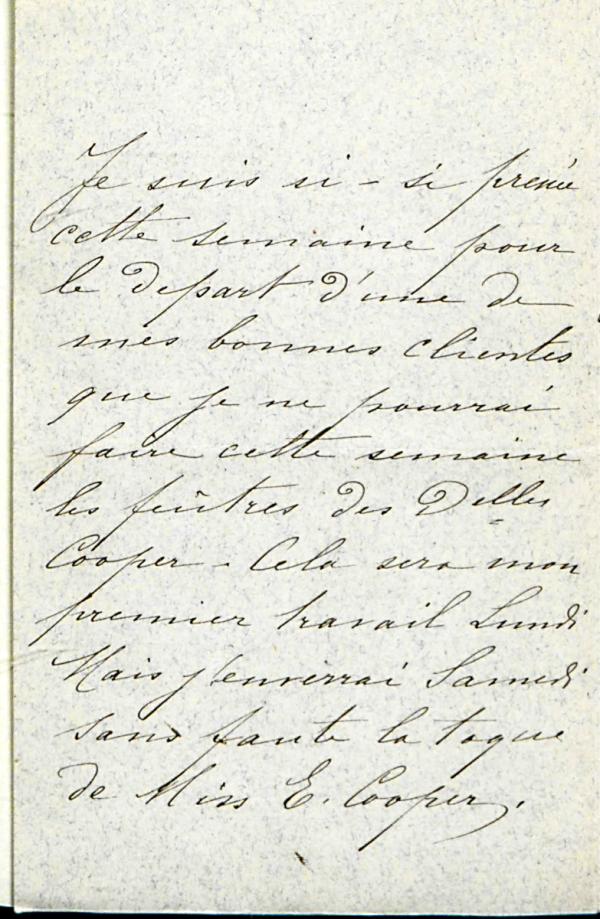 Je suis si - si pressée
cette semaine pour
le départ d'une de
mes bonnes clientes
que je ne pourrai
faire cette semaine
les feûtres des Delles
Cooper - Cela sera mon
premier travail Lundi
Mais j'enverrai Samedi
sans faute la toque
de Miss E. Cooper.